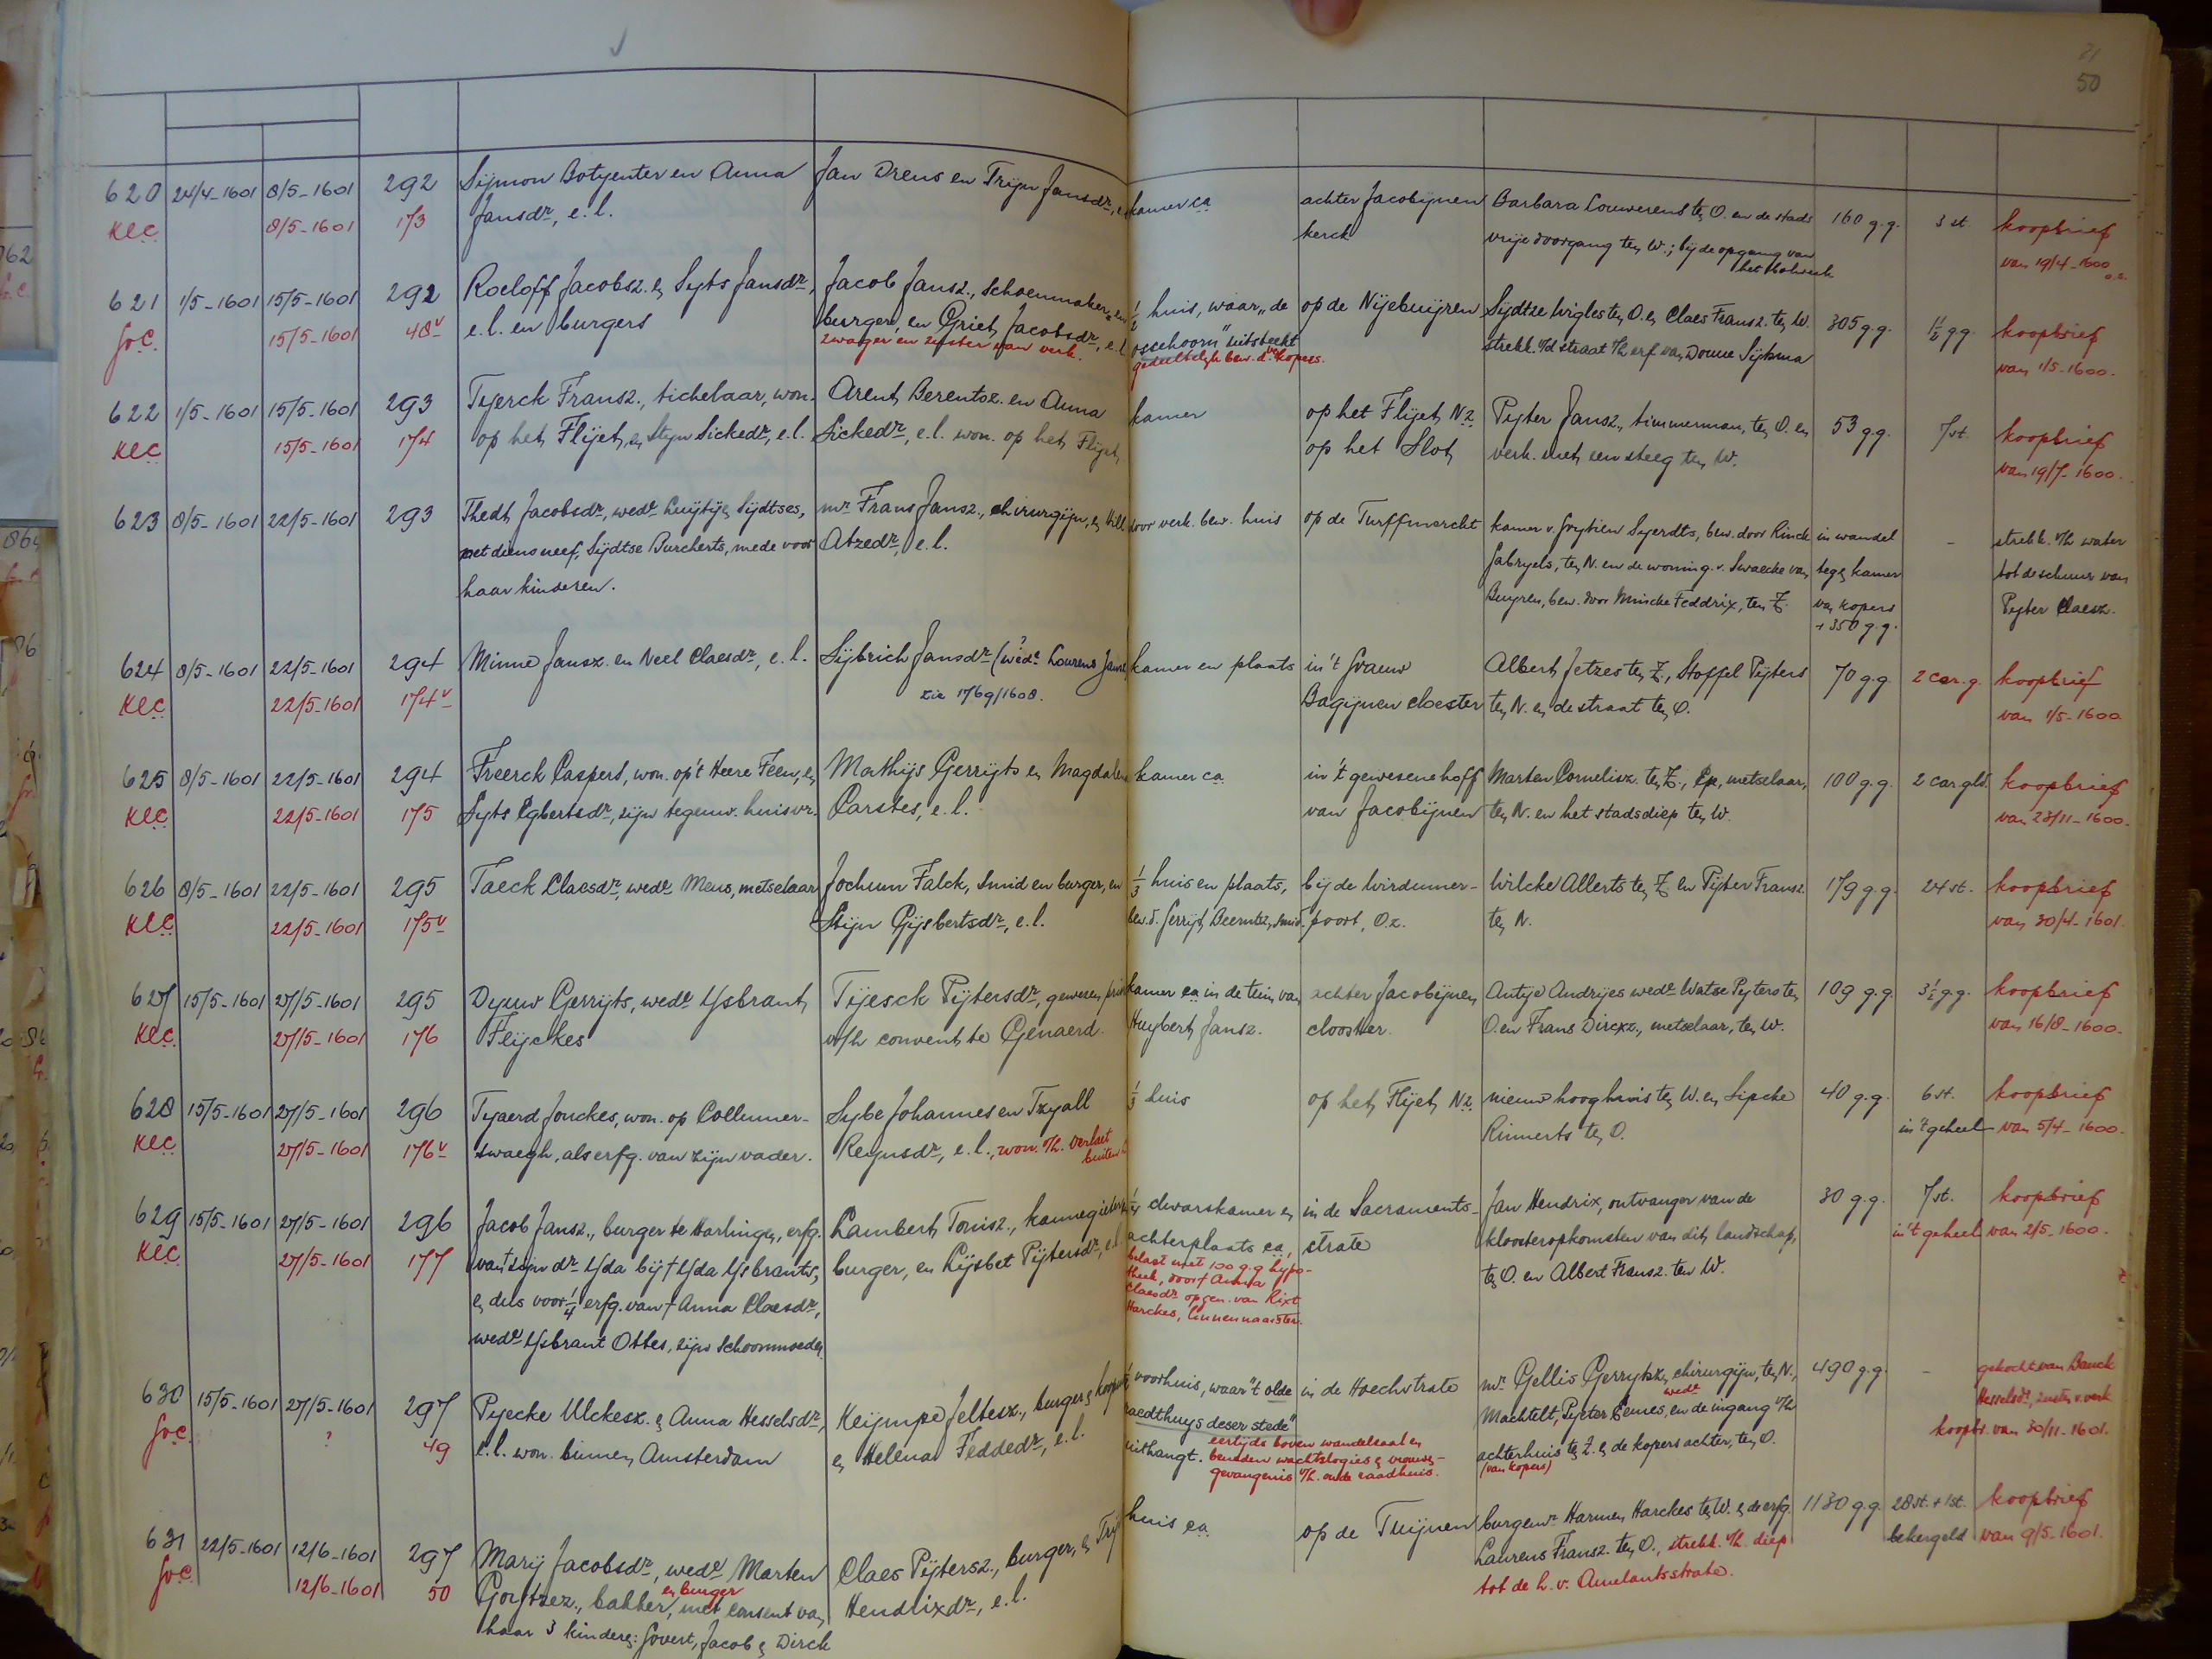 21
50
620 24/4-1601 8/5-1601 292 Sijmon Botyenter en Anna Jan Drens en Trijn Jansdr, kamer ca achter Jacobijnen Barbara Louwerens ten O. en de stads 160 g.g. 3 st. koopbrief
KlC 8/5-1601 173 Jansdr, e.l. kerck vrije doorgang ten W.; bij de opgang van van 19/4-1600
het bolwerk o.s.
621 1/5-1601 15/5-1601 292 Roeloff Jacobsz. en Syts Jansdr, Jacob Jansz., schoenmaker en ½ huis, waar "de op de Nijebuijren Sijdtze Wigles ten O. en Claes Fransz. ten W. 305 g.g. 1½ g.g. koopbrief
GrC 15/5-1601 48v e.l. en burgers burger, en Griet Jacobsdr, e.l. osschoorn" uitsteekt strekk. v/d straat t/h erf van Douue Sijtsma van 1/5-1600.
zwager en zuster van verk. gedeeltelijk bew. d. verkopers.
622 1/5-1601 15/5-1601 293 Tyerck Fransz., tichelaar, won. Arent Berentsz. en Anna kamer op het Flijet Nz. Pyter Jansz., timmerman, ten O. en 53 g.g. 7 st. koopbrief
KlC 15/5-1601 174 op het Flijet, en Styn Sickedr, e.l. Sickedr, e.l. won. op het Flijet op het Slot verk. met een steeg ten W. van 19/7-1600.
623 8/5-1601 22/5-1601 293 Thedt Jacobsdr, wede Luijtyen Sijdtses, mr Frans Jansz., chirurgijn, en door verk. bew. huis op de Turffmerckt kamer v. Frytien Syerdts, bew. door Rinck in wandel - strekk. t/h water
met diens neef, Sijdtse Burcherts, mede voor Atzedr, e.l. Gabryels, ten N. en de woning v. Swaecke van tegen kamer tot de schuur van
haar kinderen. Buyren, bew. door Mincke Feddrix, ten Z. van kopers Pyter Claesz.
+ 350 g.g.
624 8/5-1601 22/5-1601 294 Minne Jansz. en Neel Claesdr, e.l. Sijbrich Jansdr (wede? Lourens Jansz kamer en plaats in 't Grauw Albert Jetzes ten Z., Stoffel Pijters 70 g.g. 2 car. g. koopbrief
KlC 22/5-1601 174v zie 1769/1608. Bagijnen cloester ten N. en de straat ten O. van 1/5-1600
625 8/5-1601 22/5-1601 294 Freerck Caspers, won. op't Heere Feen, en Mathijs Gerrijts en Magdalena kamer ca in 't gewesene hoff Marten Cornelisz. ten Z., Ep, metselaar, 100 g.g. 2 car. gld. koopbrief
KlC 22/5-1601 175 Syts Egbertsdr, zijn tegenw. huisvr. Carstes, e.l. van Jacobijnen ten N. en het stadsdiep ten W. van 23/11-1600.
626 8/5-1601 22/5-1601 295 Taeck Claesdr, wede Meus, metselaar Jochum Falck, smid en burger, en ⅓ huis en plaats, bij de Wirdumer- Wilcke Allerts ten Z. en Pijter Fransz. 179 g.g. 24 st. koopbrief
KlC 22/5-1601 175v Stijn Gijsbertsdr, e.l. bew. d. Gerrijt Beerntsz, smid. poort, O.z. ten N. van 30/4-1601.
627 15/5-1601 27/5-1601 295 Dyuw Gerrijts, wede IJsbrant Tijesck Pijtersdr, gewesen kamer ca in de tuin van achter Jacobijnen Antije Andrijes wede Watse Pyters ten 109 g.g. 3½ g.g. koopbrief
KlC 27/5-1601 176 Flijckes v/h convent te Genaerd. Huybert Jansz. clooster. O. en Frans Dircxz., metselaar, ten W. van 16/8-1600.
628 15/5-1601 27/5-1601 296 Tyaerd Jonckes, won. op Collumer- Sybe Johannes en Tzyall ⅓ huis op het Flijet Nz. nieuw hooghuis ten W. en Sipcke 40 g.g. 6 st. koopbrief
KlC 27/5-1601 176v swaegh, als erfg. van zijn vader. Reynsdr, e.l., won. t/h. verlaet buiten Rinnerts ten O. in 't geheel van 5/4-1600.
629 15/5-1601 27/5-1601 296 Jacob Jansz., burger te Harlingen, erfg. Lambert Tonisz., kannegieter en ¼ dwarskamer en in de Sacraments- Jan Hendrix, ontvanger van de 30 g.g. 7 st. koopbrief
KlC 27/5-1601 177 van zijn dr IJda bij † IJda IJsbrants, burger, en Lijsbet Pijtersdr, e.l. achterplaats ca, strate kloosteropkomsten van dit landschap, in 't geheel van 2/5-1600.
en dus voor ¼ erfg. van † Anna Claesdr, belast met 100 g.g. hypo- ten O. en Albert Fransz. ten W.
wede IJsbrant Ottes, zijn schoonmoeder theek, door † Anna
Claesdr opgen. van Rixt
Harckes, linnennaaister.
630 15/5-1601 27/5-1601 297 Pyecke Ulckesz. en Anna Hesselsdr, Keijmpe Jeltesz., burger en koopman voorhuis, waar "'t olde in de Hoechstrate mr Gellis Gerrytsz, chirurgijn, ten N., 490 g.g. - gekocht van Bauck
GrC ? 49 e.l. won. binnen Amsterdam en Helena Feddedr, e.l. raedthuys deser stede" Machtelt, wede Pyeter Eemes, en de ingang t/h Hesselsdr, zuster v. verk
uithangt. eertijds boven wandelzaal en achterhuis ten Z. en de kopers achter, ten O. koopbr. van 30/11-1601.
beneden wachtslogies en vrouwen- (van kopers)
gevangenis t/h. oude raadhuis.
631 22/5-1601 12/6-1601 297 Marij Jacobsdr, wede Marten Claes Pijtersz., burger, en huis ca op de Tuijnen burgemr Harmen Harckes ten W. en de erfg. 1130 g.g. 28 st. + 1 st. koopbrief
GrC 12/6-1601 50 Goytzez., bakker en burger, met consent van Hendrixdr, e.l. Laurens Fransz. ten O., strekk. t/h. diep bekergeld van 9/5-1601.
haar 3 kinderen: Govert, Jacob en Dirck tot de h. v. Amelantsstrate.